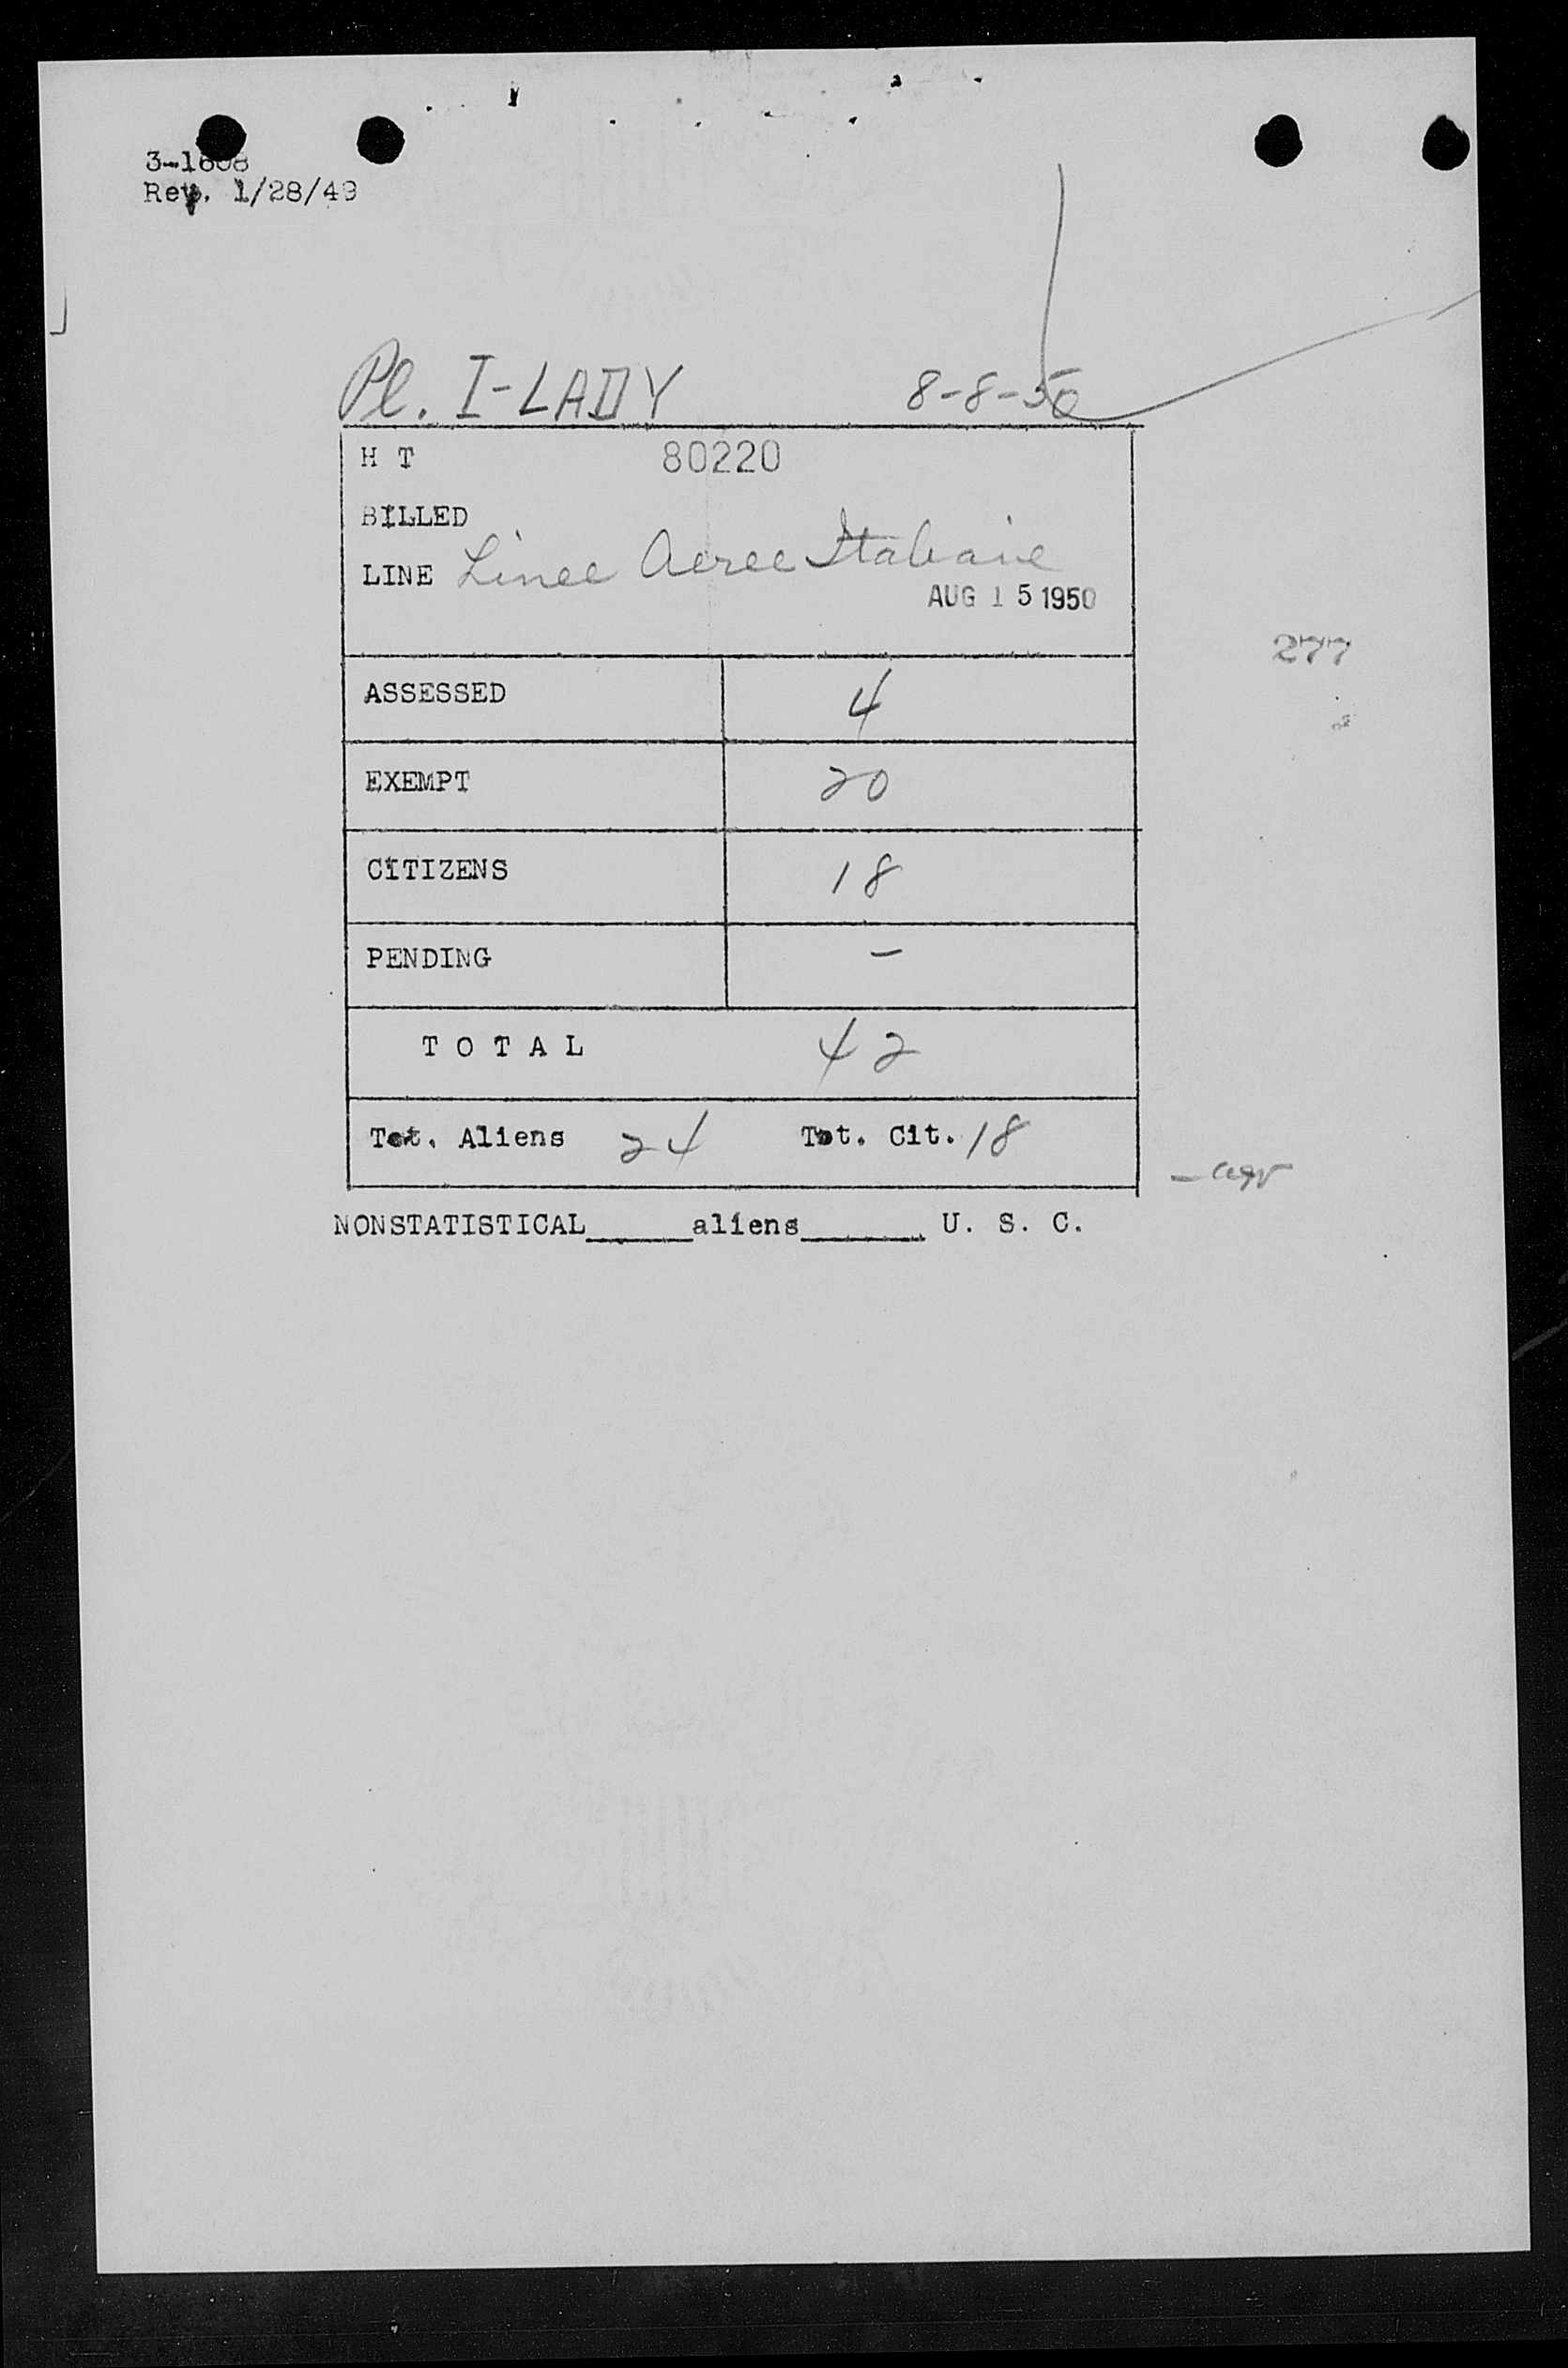 3-1608
Rev. 1/28/49
Pl. I-LADY 8-8-50
H T 80220
BILLED
LINE Linee Aeree Italiane
AUG 15 1950
277
ASSESSED 4
EXEMPT 20
CITIZENS 18
PENDING -
TOTAL 42
Tot. Aliens 24 Tot. Cit. 18
NONSTATISTICAL______aliens_______ U. S. C.